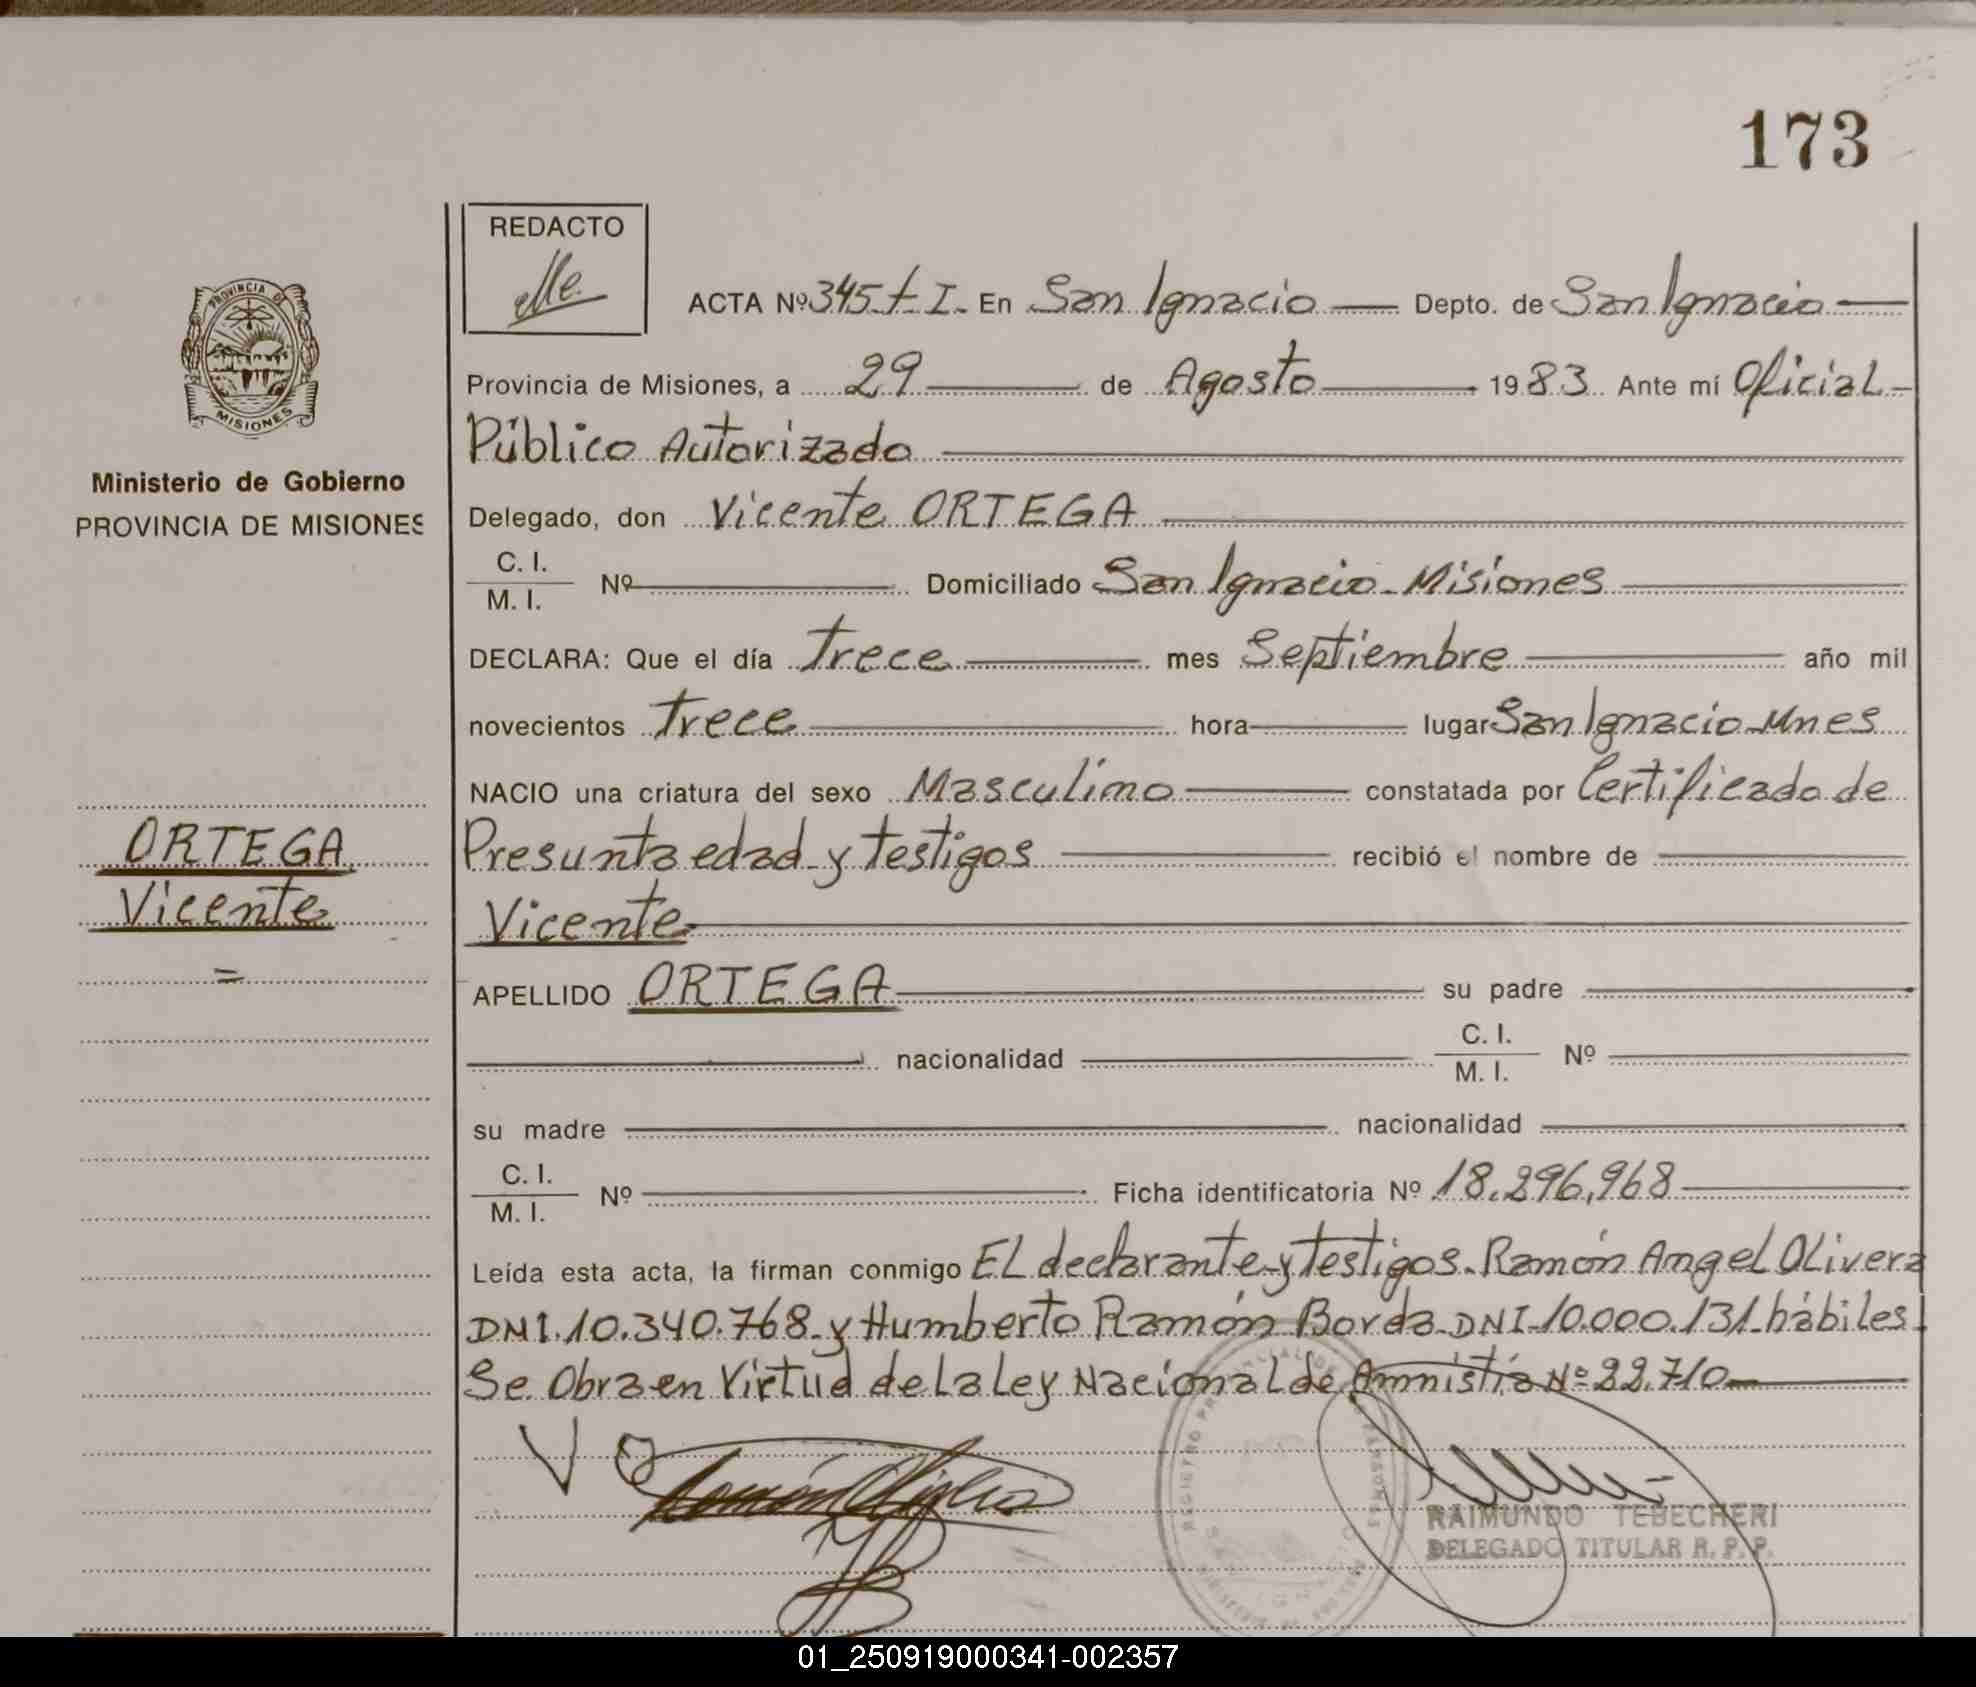 173
REDACTO
ACTA Nº 345 t I. En San Ignacio Depto. de San Ignacio
PROVINCIA DE
MISIONES
Provincia de Misiones, a 29 de Agosto 1983 Ante mí Oficial
Público Autorizado
Ministerio de Gobierno
PROVINCIA DE MISIONES
Delegado, don Vicente ORTEGA
C. I.
M. I. Nº Domiciliado San Ignacio-Misiones
DECLARA: Que el día trece mes Septiembre año mil
novecientos trece hora lugar San Ignacio-Mnes
NACIO una criatura del sexo Masculino constatada por Certificado de
Presunta edad y testigos recibió el nombre de
ORTEGA
Vicente
=
Vicente
APELLIDO ORTEGA su padre
nacionalidad C. I.
M. I. Nº
su madre nacionalidad
C. I.
M. I. Nº Ficha identificatoria Nº 18.296.968
Leída esta acta, la firman conmigo El declarante y testigos. Ramón Angel Olivera
DNI.10.340.768 y Humberto Ramón Borda DNI-10.000.131-hábiles.
Se Obra en Virtud de la Ley Nacional de Amnistía Nº 22.710
V O
RAIMUNDO TEBECHERI
DELEGADO TITULAR R. P. P.
01_250919000341-002357